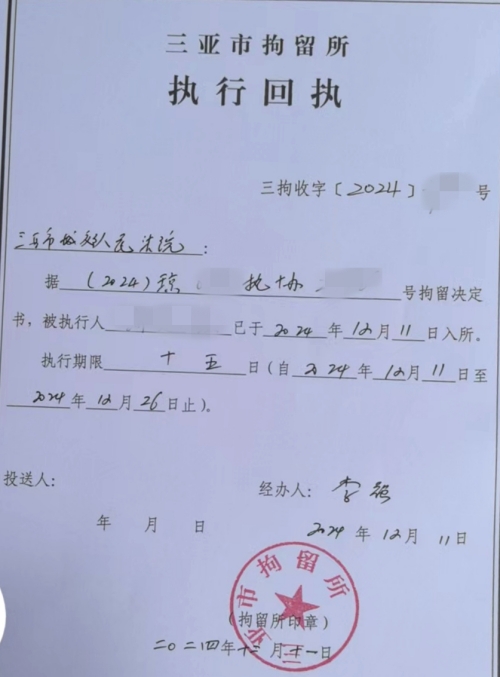 三亚市拘留所
执行回执
三拘收字〔2024〕 号
三亚市城郊人民法院:
据(2024)琼 执协 号拘留决定
书,被执行人 已于2024年12月11日入所。
执行期限十五日(自2024年12月11日至
2024年12月26日止)。
投送人: 经办人:李强
年 月 日 2024年12月11日
三亚市拘留所
(拘留所印章)
二〇二四年十二月十一日